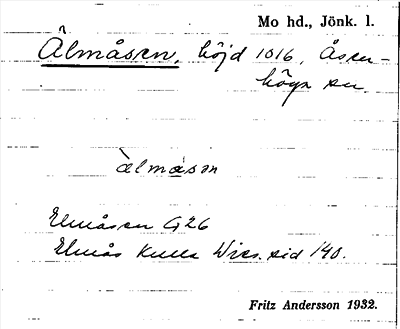 Mo hd., Jönk. l.
Älmåsen, höjd 1016, Åsen-
höga sn.
àlmåsən
Elmåsen G26
Elmås Kulle Wies. sid 140.
Fritz Andersson 1932.